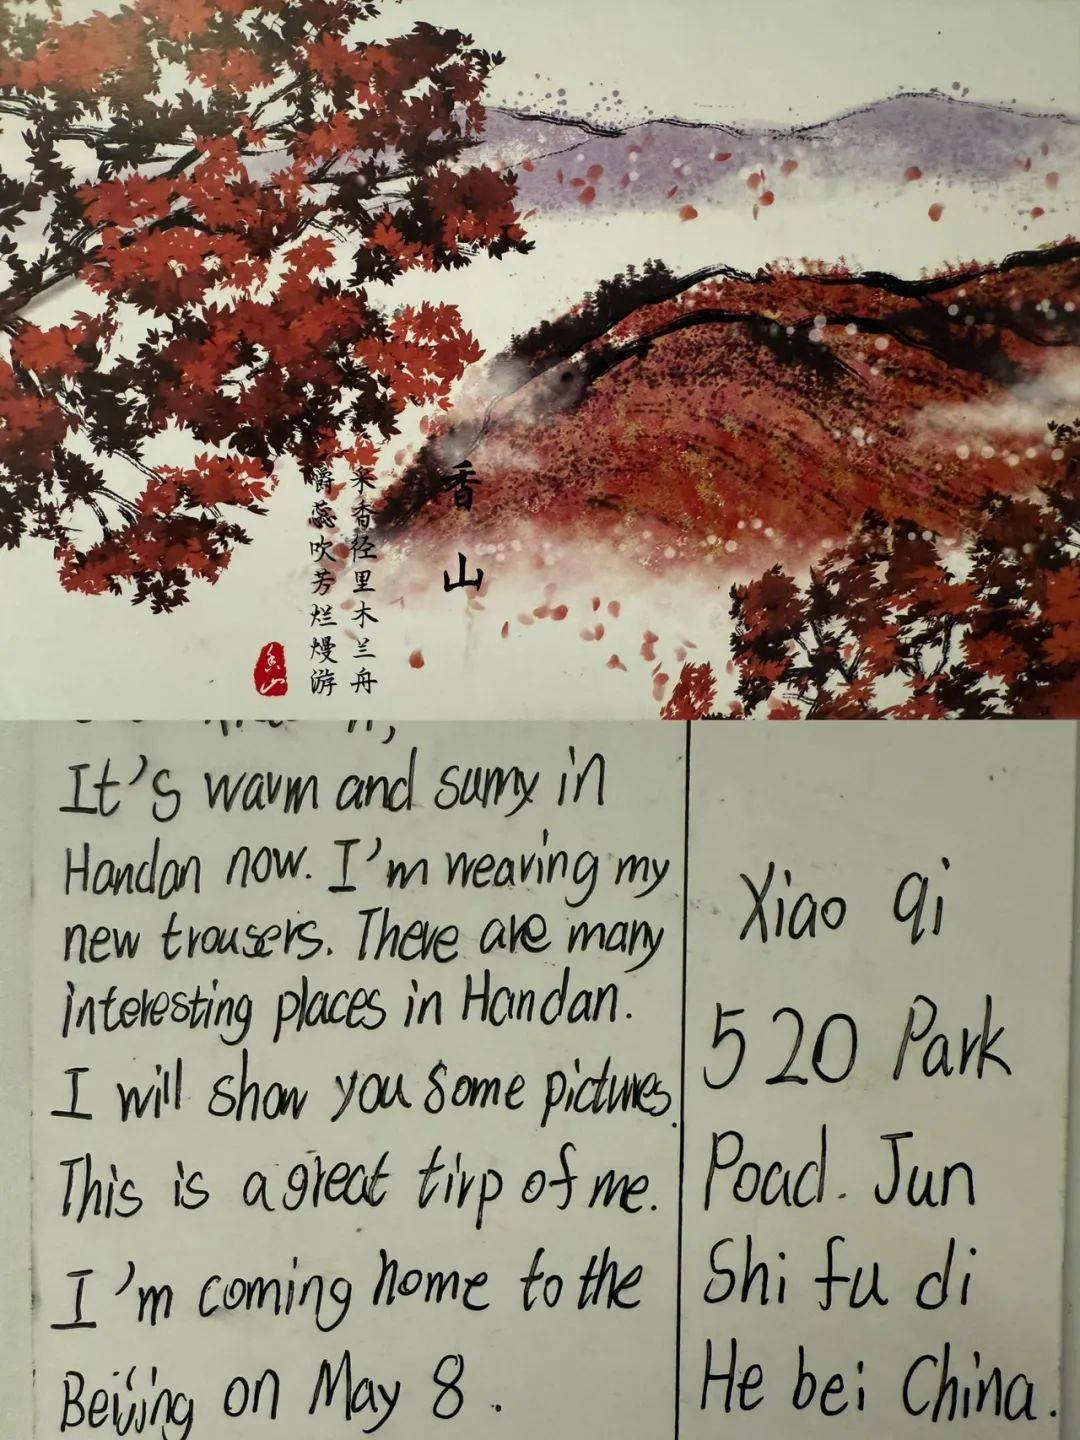 香山
采香径里木兰舟
嚼蕊吹芳烂熳游
香山
It's warm and sunny in
Handan now. I'm wearing my
new trousers. There are many
interesting places in Handan.
I will show you some pictures.
This is a great tirp of me.
I'm coming home to the
Beijing on May 8.
Xiao qi
520 Park
Poad. Jun
Shi fu di
He bei China.